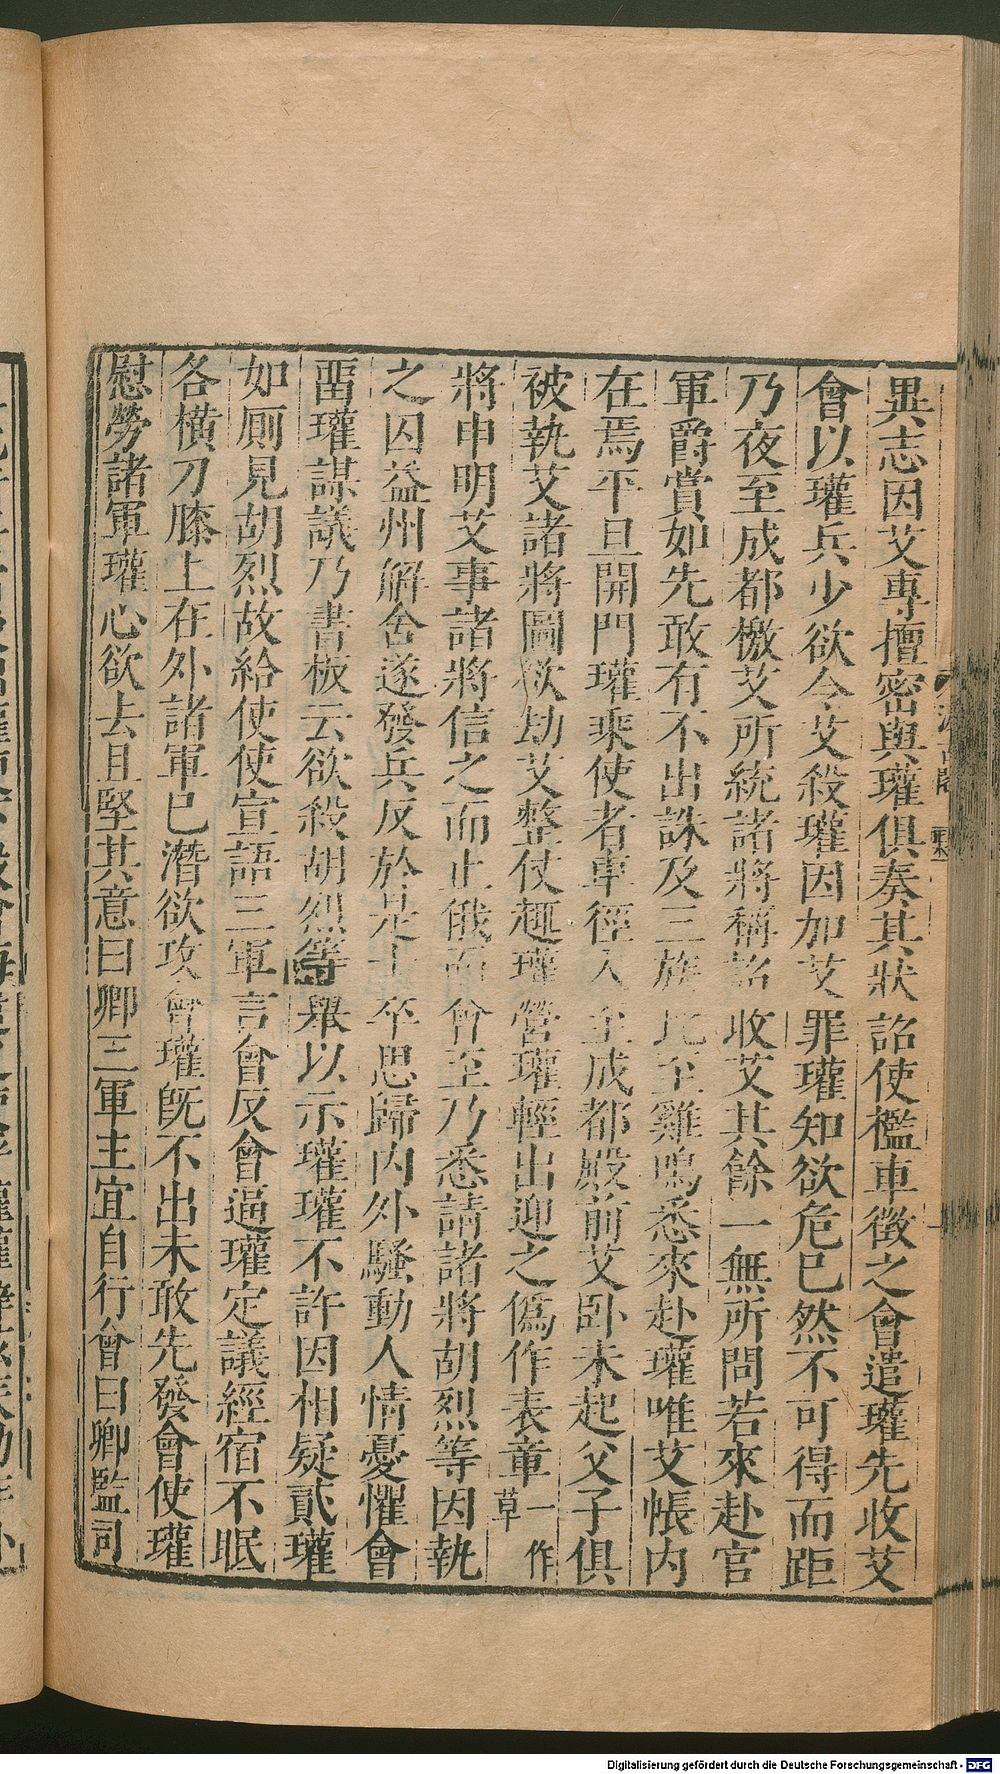 異志因艾專擅密與瓘俱奏其狀詔使檻車徵之會遣瓘先收艾
會以瓘兵少欲令艾殺瓘因加艾罪瓘知欲危己然不可得而距
乃夜至成都檄艾所統諸將稱詔收艾其餘一無所問若來赴官
軍爵賞如先敢有不出誅及三族比至雞鳴悉來赴瓘唯艾帳內
在焉平旦開門瓘乘使者車徑入至成都殿前艾臥未起父子俱
被執艾諸將圖欲劫艾整仗趣瓘營瓘輕出迎之僞作表章一作草
將申明艾事諸將信之而止俄而會至乃悉請諸將胡烈等因執
之囚益州解舍遂發兵反於是士卒思歸內外騷動人情憂懼會
畱瓘謀議乃書板云欲殺胡烈等舉以示瓘瓘不許因相疑貳瓘
如厠見胡烈故給使使宣語三軍言會反會逼瓘定議經宿不眠
各橫刀膝上在外諸軍已潛欲攻會瓘旣不出未敢先發會使瓘
慰勞諸軍瓘心欲去且堅其意曰卿三軍主宜自行會曰卿監司
Digitalisierung gefördert durch die Deutsche Forschungsgemeinschaft - DFG